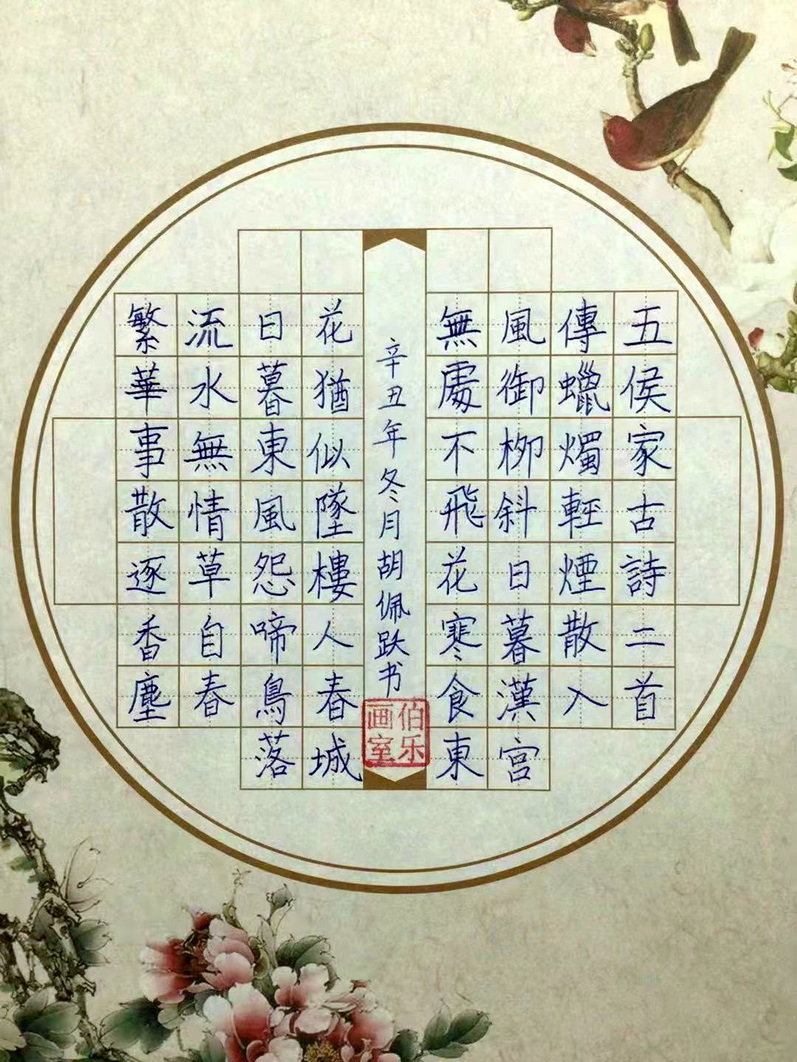 繁華事散逐香塵
流水無情草自春
日暮東風怨啼鳥落
花猶似墜樓人春城
無處不飛花寒食東
風御柳斜日暮漢宮
傳蠟燭輕煙散入
五侯家古詩二首
辛丑年冬月胡佩跃书
伯乐画室